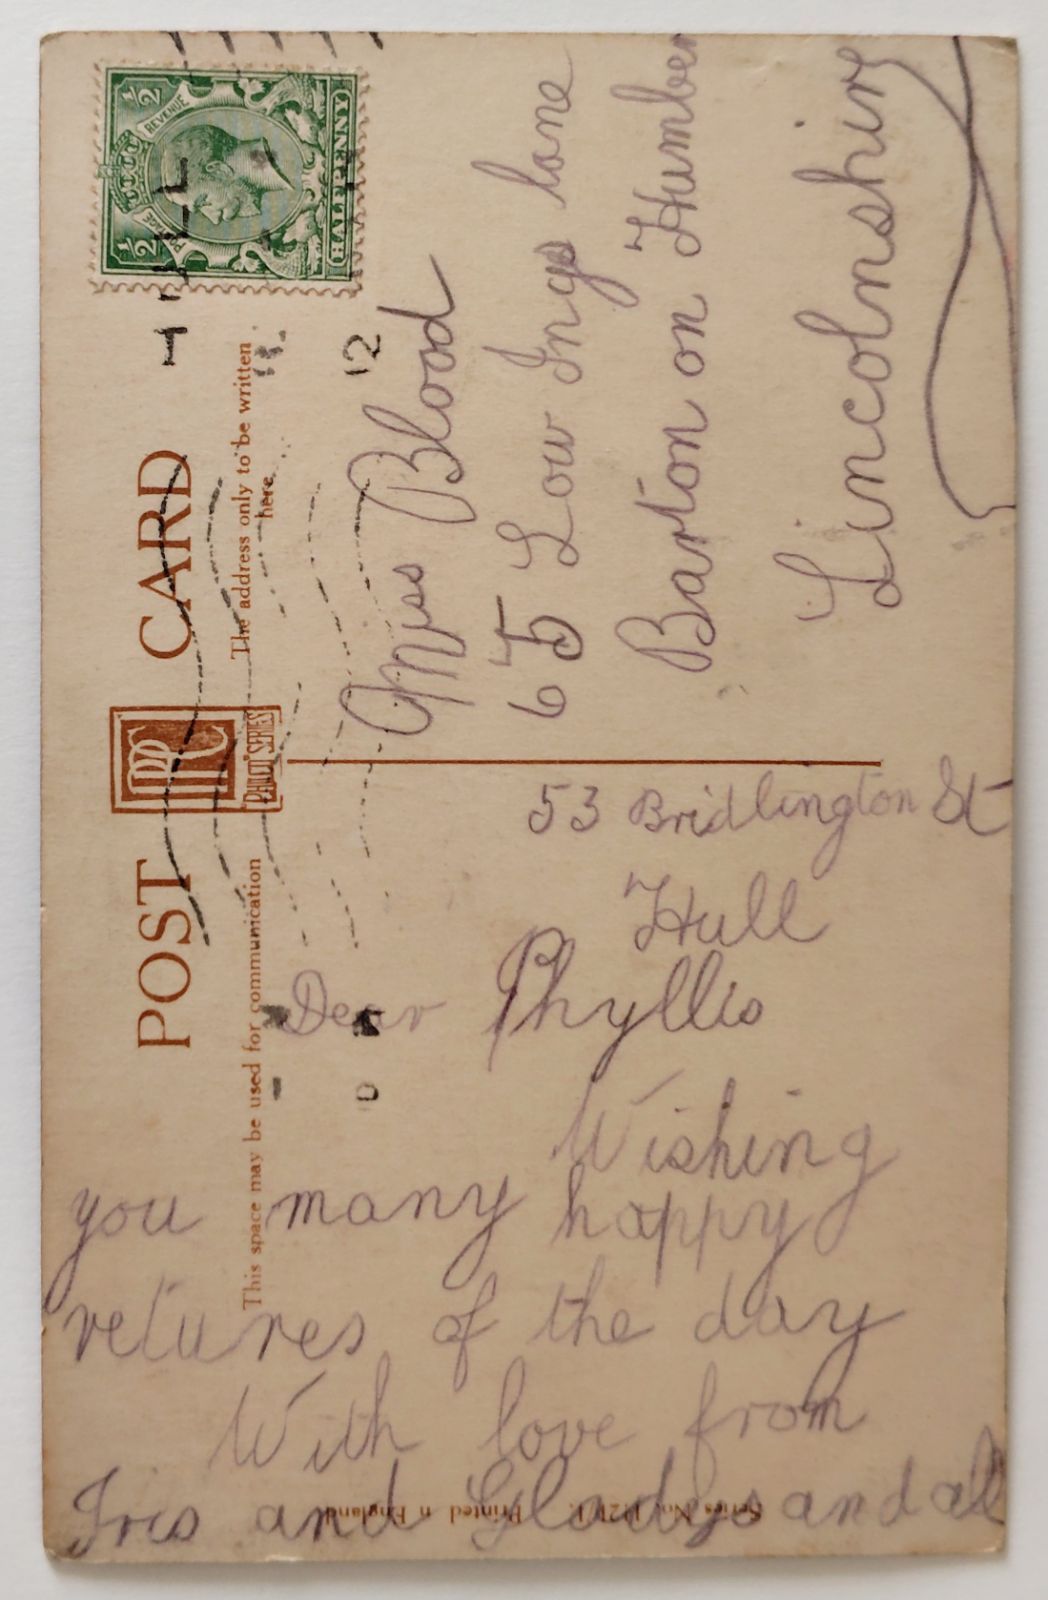 POST CARD
PHILCO SERIES
This space may be used for communication
The address only to be written
here.
½ ½
POSTAGE REVENUE
HALFPENNY
HULL
12
53 Bridlington St
Hull
Dear Phyllis
Wishing
you many happy
retures of the day
With love from
Iris and Gladys and all
Miss Blood
65 Low Ings lane
Barton on Humber
Lincolnshire
Printed in England
Series No.